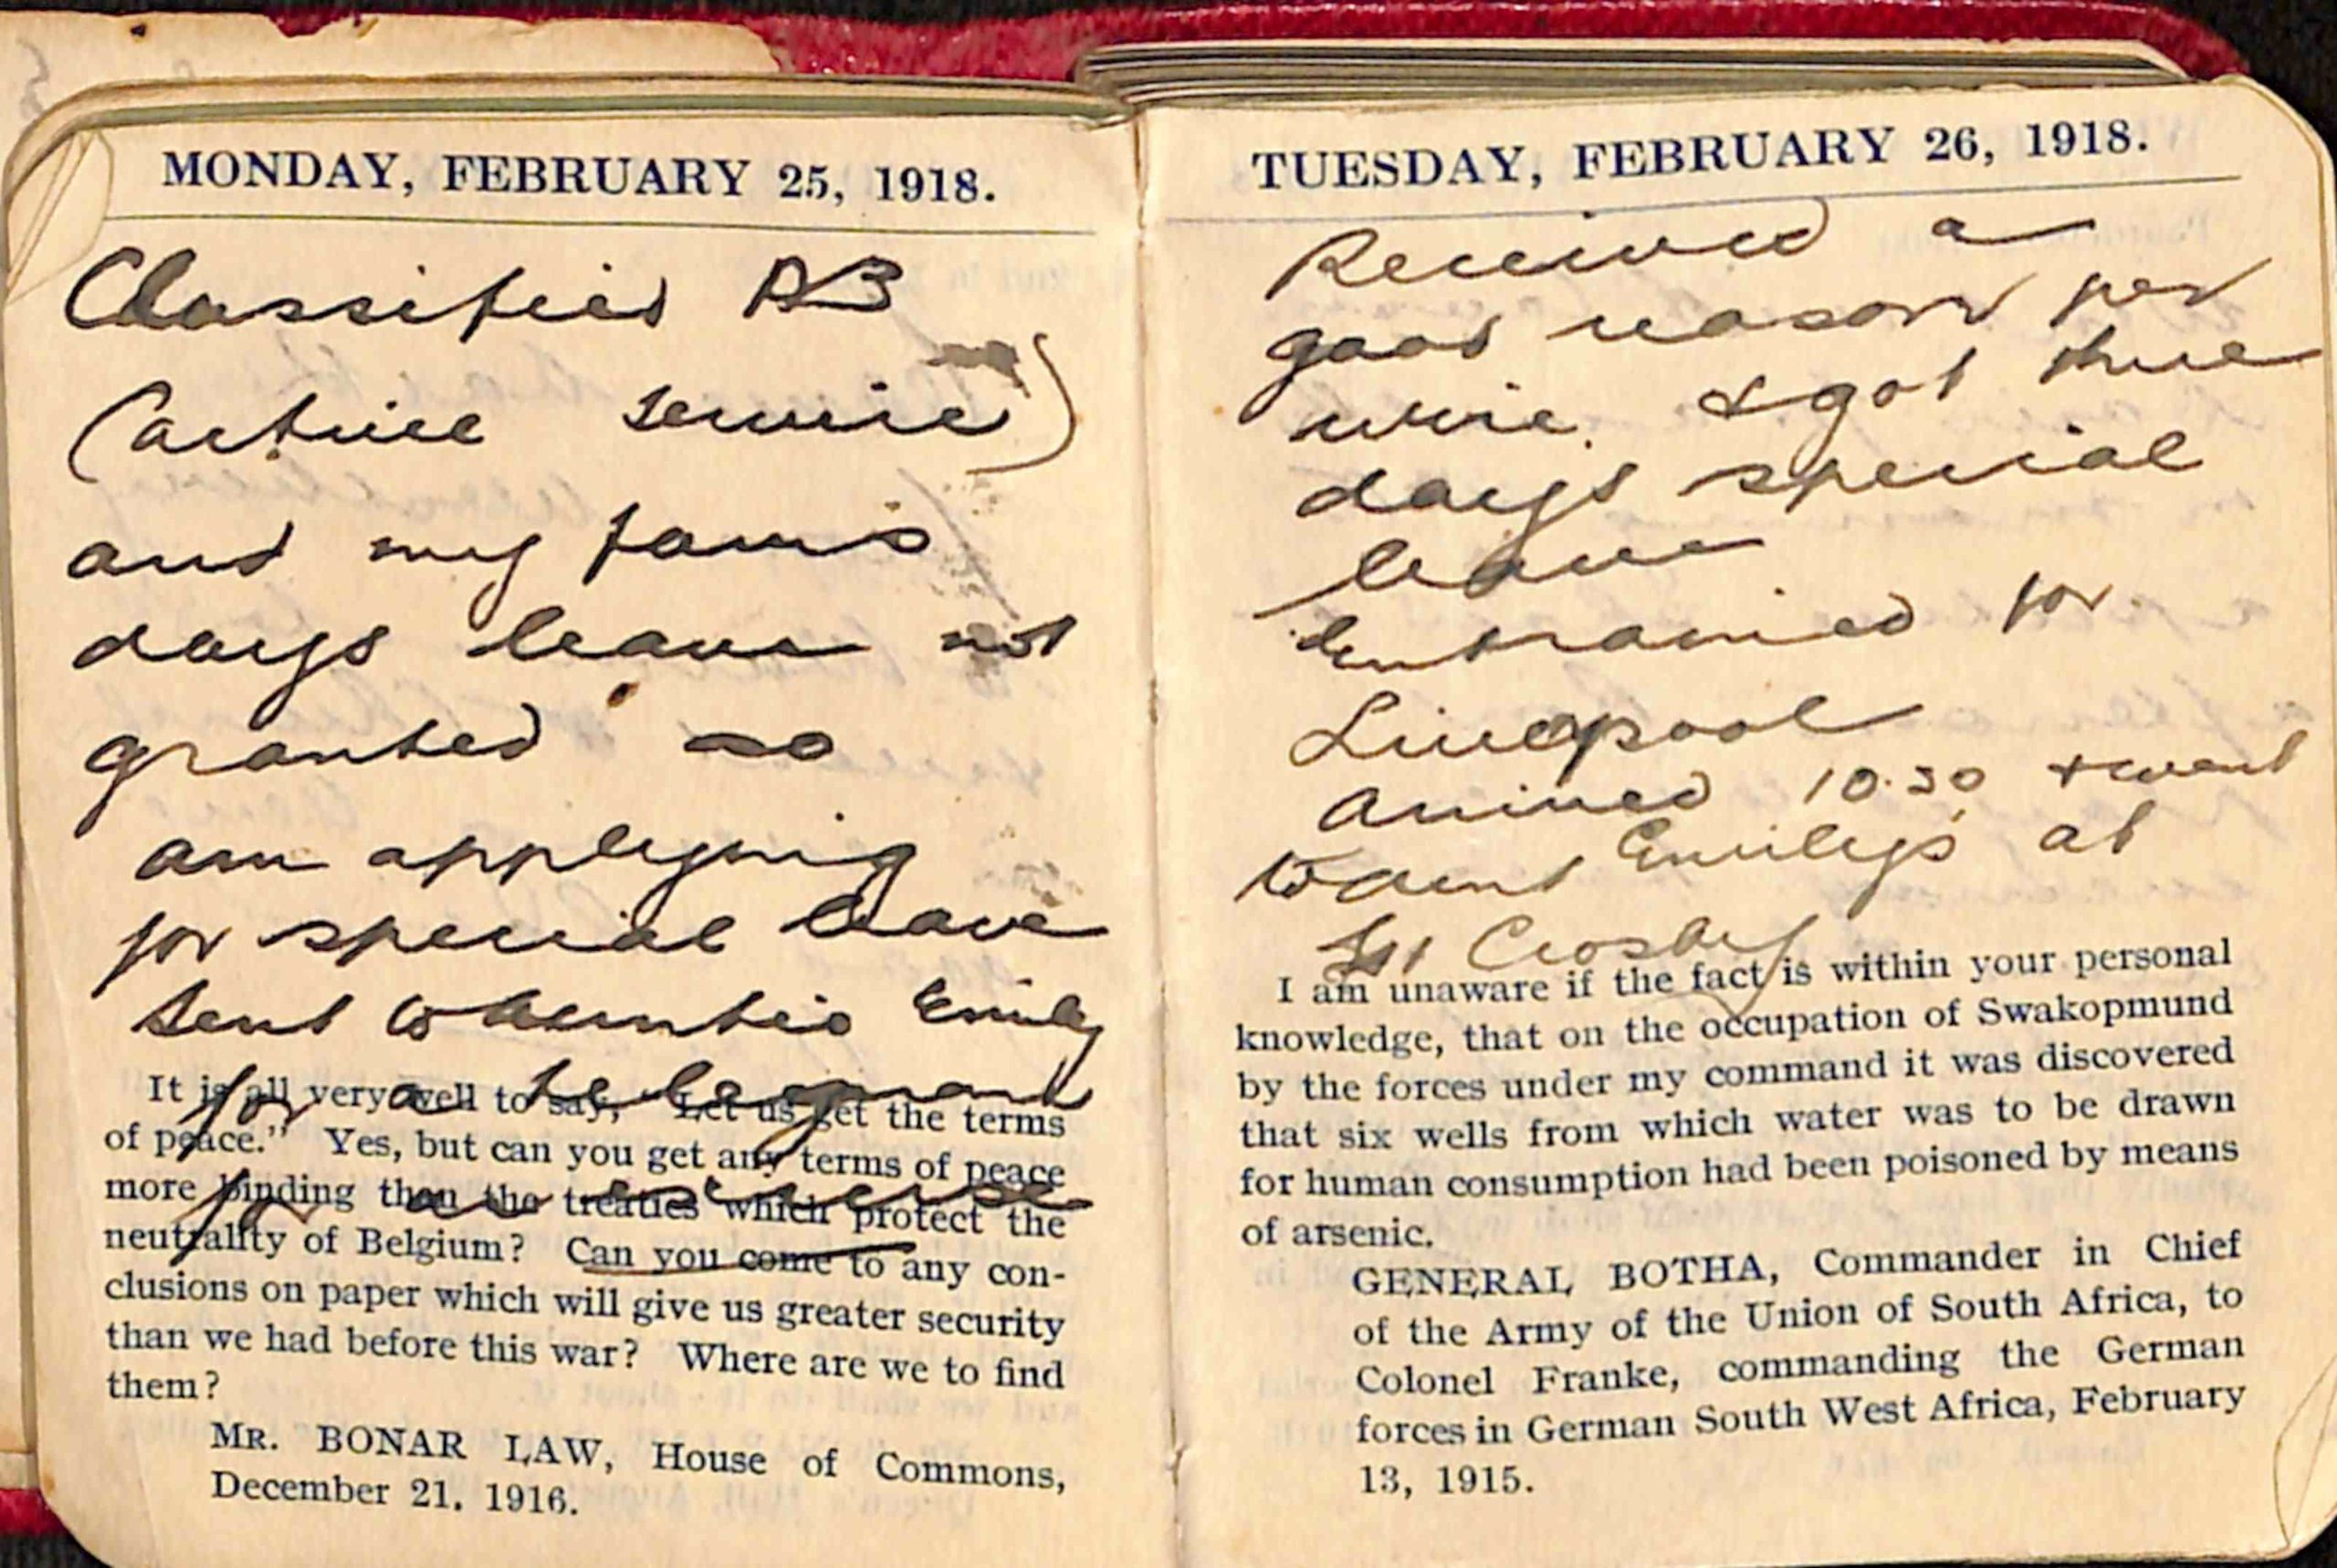 MONDAY, FEBRUARY 25, 1918.
Classified
(active service)
and my
days leave not
granted so
am applying
for special leave
sent to Auntie Emily
for a telegram
for an excuse
It is all very well to say, "Let us get the terms
of peace." Yes, but can you get any terms of peace
more binding than the treaties which protect the
neutrality of Belgium? Can you come to any con-
clusions on paper which will give us greater security
than we had before this war? Where are we to find
them?
MR. BONAR LAW, House of Commons,
December 21, 1916.
TUESDAY, FEBRUARY 26, 1918.
Received a
good reason per
wire. & got three
days special
leave
Entrained for
Liverpool
Arrived 10.30 & went
to Aunt Emily's at
Gt Crosby
I am unaware if the fact is within your personal
knowledge, that on the occupation of Swakopmund
by the forces under my command it was discovered
that six wells from which water was to be drawn
for human consumption had been poisoned by means
of arsenic.
GENERAL BOTHA, Commander in Chief
of the Army of the Union of South Africa, to
Colonel Franke, commanding the German
forces in German South West Africa, February
13, 1915.